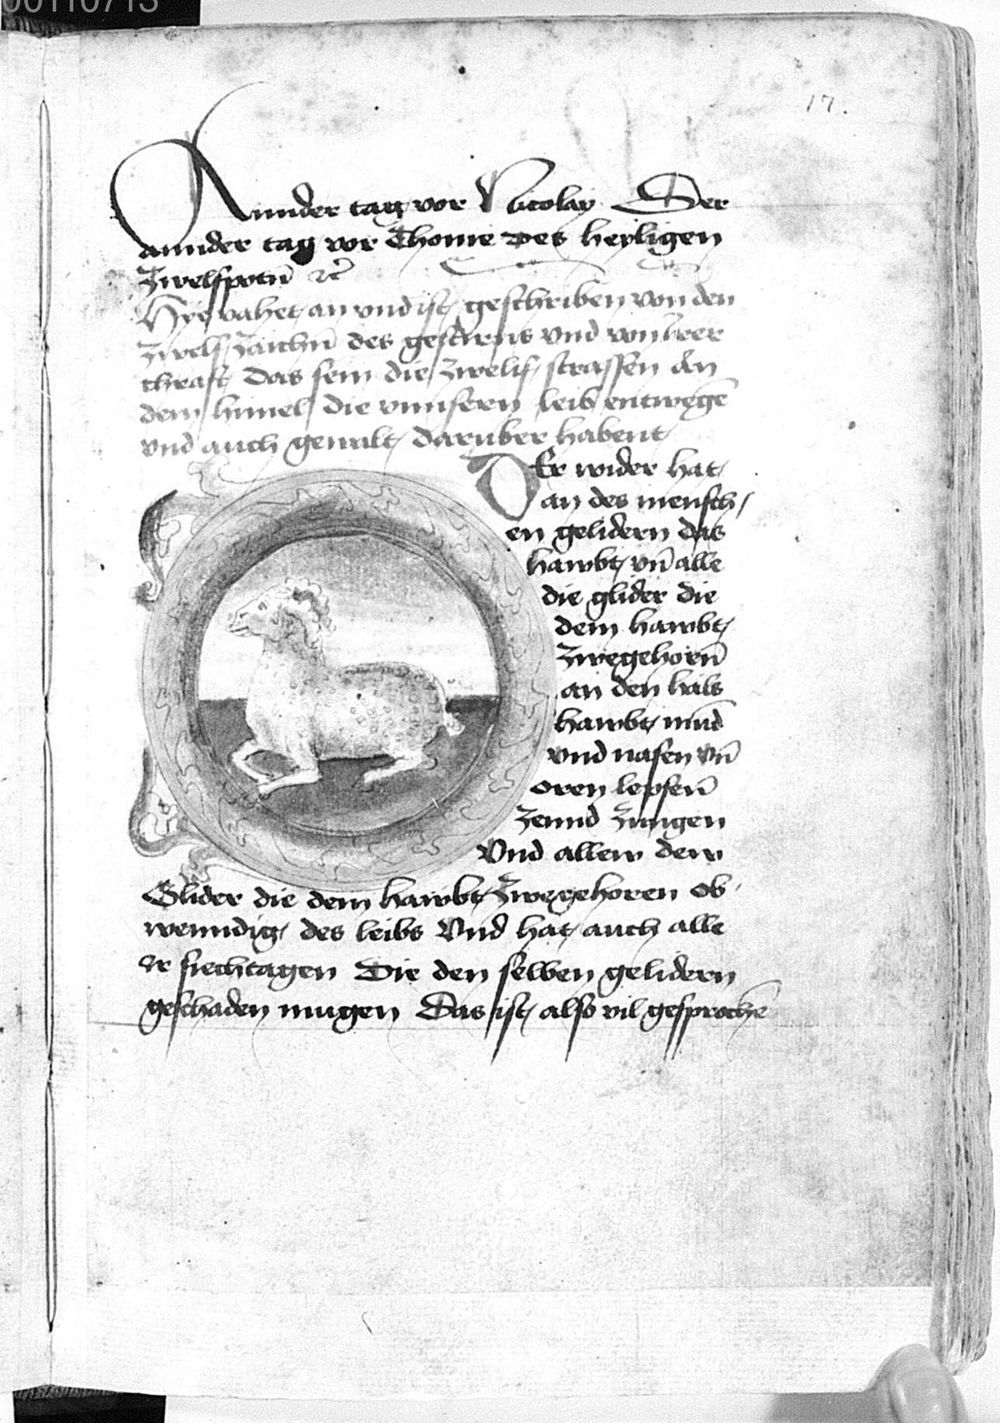 00110713
17.
Annder tag vor Nicolay Der
annder tag vor Thome des heyligen
Zwelfpotñ ꝛc̃
Hye vahet an vnd ist geschriben von den
Zwelf Zaichñ des gestirns vnd von irer
chraft Das sein die Zwelif strassen An
dem himel die vnnsern leib entwege͂
vnd auch gewalt darüber habent
DEr wider hat
an des mensch
en gelidern das
hawbt vñ alle
die glider die
dem hawbt
Zwgehorñ
an den hals
hawbt mũd
vnd nasen vñ
oren lepsenñ
Zennd Zungen
Vnd allen den
Glider die dem hawbt Zwgehoren ob
wenndig des leibs Vnd hat auch alle
siechtagen Die den selben gelidern
geschaden mugen Das ist also vil gesproche͂